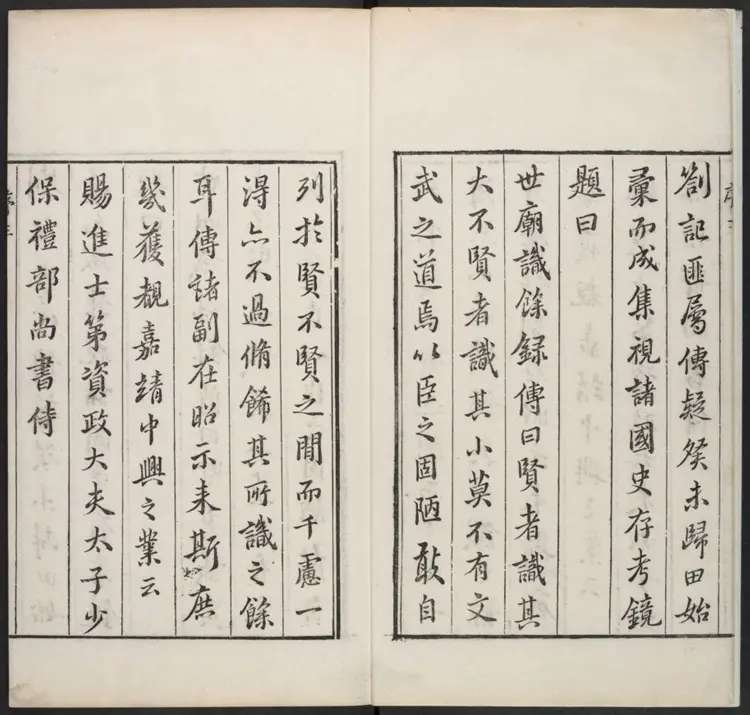 劄記匪屬傳疑癸未歸田始
彙而成集視諸國史存考鏡
題曰
世廟識餘録傳曰賢者識其
大不賢者識其小莫不有文
武之道焉以臣之固陋敢自
列扵賢不賢之間而千慮一
淂亦不過脩餙其所識之餘
耳傳諸副在昭示来斯庶
幾獲覩嘉靖中興之業云
賜進士第資政大夫太子少
保禮部尚書侍